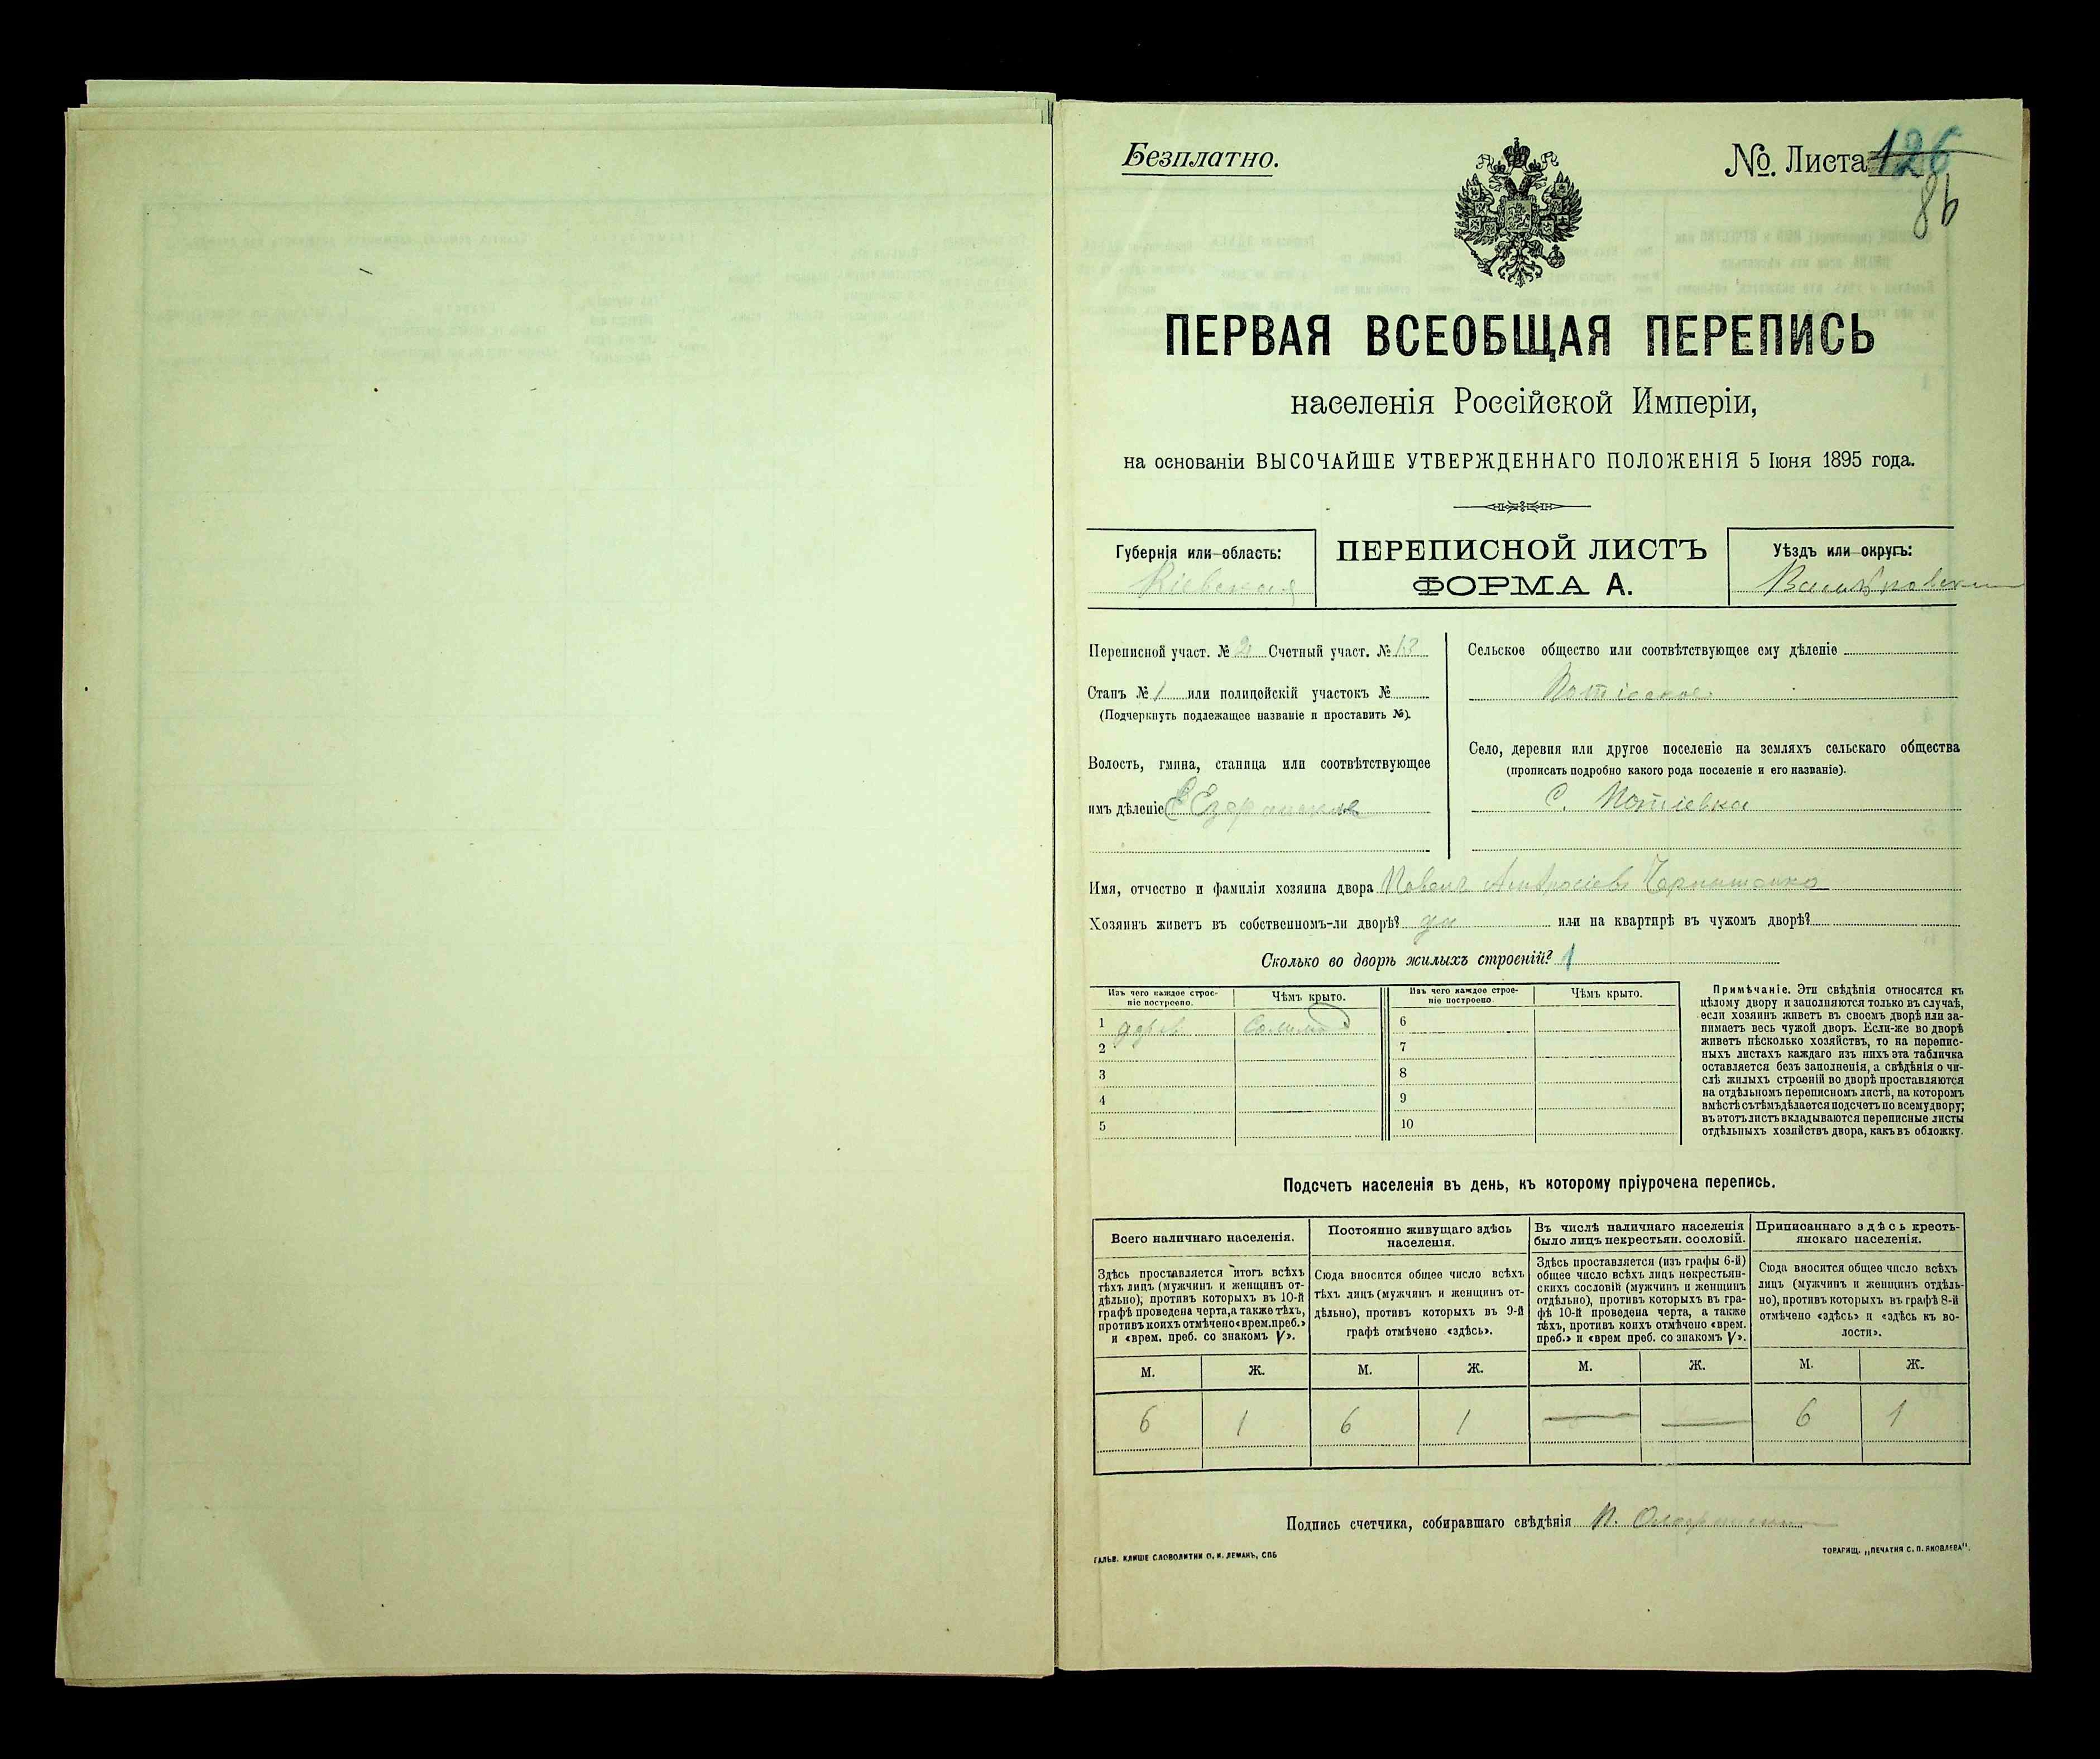 Безплатно.
№. Листа 126
86
ПЕРВАЯ ВСЕОБЩАЯ ПЕРЕПИСЬ
населенія Россійской Имперіи,
на основаніи ВЫСОЧАЙШЕ УТВЕРЖДЕННАГО ПОЛОЖЕНІЯ 5 Іюня 1895 года.
Губернія или область:
Кіевская
ПЕРЕПИСНОЙ ЛИСТЪ
ФОРМА А.
Уѣздъ или округъ:
Переписной участ. № 2 Счетный участ. № 13
Станъ № 1 или полицейскій участокъ №
(Подчеркнуть подлежащее названіе и проставить №).
Волость, гмина, станица или соотвѣтствующее
имъ дѣленіе
Сельское общество или соотвѣтствующее ему дѣленіе
Потіевское
Село, деревня или другое поселеніе на земляхъ сельскаго общества
(прописать подробно какого рода поселеніе и его названіе).
С. Потіевка
Имя, отчество и фамилія хозяина двора
Хозяинъ живетъ въ собственномъ-ли дворѣ? да или на квартирѣ въ чужомъ дворѣ?
Сколько во дворѣ жилыхъ строеній? 1
Изъ чего каждое строе-
ніе построено.
Чѣмъ крыто.
Изъ чего каждое строе-
ніе построено
Чѣмъ крыто.
1 дерев. Солома 6
2 7
3 8
4 9
5 10
Примѣчаніе. Эти свѣдѣнія относятся къ
цѣлому двору и заполняются только въ случаѣ,
если хозяинъ живетъ въ своемъ дворѣ или за-
нимаетъ весь чужой дворъ. Если-же во дворѣ
живетъ нѣсколько хозяйствъ, то на перепис-
ныхъ листахъ каждаго изъ нихъ эта табличка
оставляется безъ заполненія, а свѣдѣнія о чи-
слѣ жилыхъ строеній во дворѣ проставляются
на отдѣльномъ переписномъ листѣ, на которомъ
вмѣстѣ съ тѣмъ дѣлается подсчетъ по всему двору;
въ этотъ листъ вкладываются переписные листы
отдѣльныхъ хозяйствъ двора, какъ въ обложку.
Подсчетъ населенія въ день, къ которому пріурочена перепись.
Всего наличнаго населенія.
Здѣсь проставляется итогъ всѣхъ
тѣхъ лицъ (мужчинъ и женщинъ от-
дѣльно), противъ которыхъ въ 10-й
графѣ проведена черта, а также тѣхъ,
противъ коихъ отмѣчено «врем. преб.»
и «врем. преб. со знакомъ V».
Постоянно живущаго здѣсь
населенія.
Сюда вносится общее число всѣхъ
тѣхъ лицъ (мужчинъ и женщинъ от-
дѣльно), противъ которыхъ въ 9-й
графѣ отмѣчено «здѣсь».
Въ числѣ наличнаго населенія
было лицъ некрестьян. сословій.
Здѣсь проставляется (изъ графы 6-й)
общее число всѣхъ лицъ некрестьян-
скихъ сословій (мужчинъ и женщинъ
отдѣльно), противъ которыхъ въ гра-
фѣ 10-й проведена черта, а также
тѣхъ, противъ коихъ отмѣчено «врем.
преб.» и «врем преб. со знакомъ V».
Приписаннаго здѣсь кресть-
янскаго населенія.
Сюда вносится общее число всѣхъ
лицъ (мужчинъ и женщинъ отдѣль-
но), противъ которыхъ въ графѣ 8-й
отмѣчено «здѣсь» и «здѣсь къ во-
лости».
М. Ж. М. Ж. М. Ж. М. Ж.
6 1 6 1 — — 6 1
Подпись счетчика, собиравшаго свѣдѣнія
ГАЛЬВ. КЛИШЕ СЛОВОЛИТНИ О. И. ЛЕМАНЪ, СПБ
ТОВАРИЩ. „ПЕЧАТНЯ С. П. ЯКОВЛЕВА“.